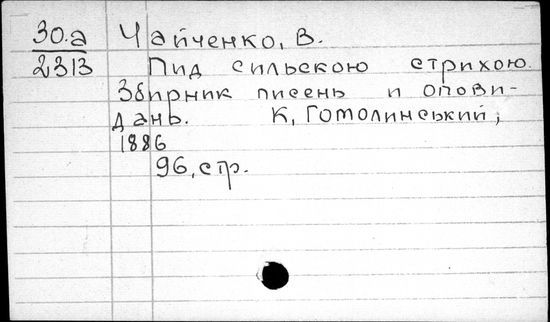 30.а Чайченко, В.
2313 Пид сильскою стрихою.
Збирник писень и опови-
дань. К, Гомолинський,
1886
96, стр.